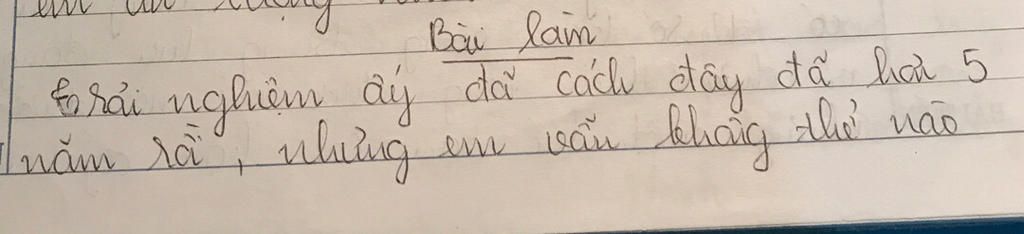 em ấn tượng
Bài làm
trải nghiệm ấy đã cách đây đã hơn 5
năm rồi, nhưng em vẫn không thể nào